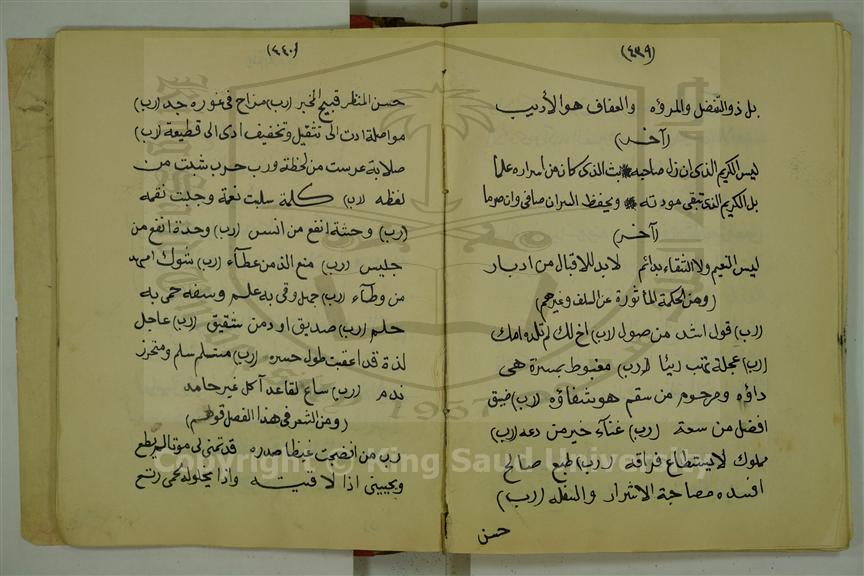 (٤٣٩)
بل ذو التفضل والمروءه والعفاف هو الأديب
(آخر)
ليس الكريم الذى ان زل صاحبه * بث الذى كان من اسراره علما
بل الكريم الذى تبقى مودته * ويحفظ السر ان صافى وان صرما
(آخر)
ليس النعيم ولا الشقاء بدائم لابد للاقبال من ادبار
(ومن الحكمة المأثورة عن السلف وغيرهم)
(رب) قول اشد من صول (رب) اخ لك لم تلده امك
(رب) عجلة تهب ريثا (رب) مغبوط بمسرة هى
داؤه ومرحوم من سقم هو شفاؤه (رب) ضيق
افضل من سعة (رب) عناء خير من دعه (رب)
مملوك لا يستطاع فراقه (رب) طبع صالح
افسده مصاحبة الاشرار والسفله (رب)
حسن
(٤٤٠)
حسن المنظر قبيح المخبر (رب) مزاح فى غوره جد (رب)
مواصلة ادت الى تثقيل وتخفيف ادى الى قطيعة (رب)
صلابة غرست من لحظة ورب حرب شبت من
لفظه (رب) كلمة سلبت نعمة وجلبت نقمه
(رب) وحشة انفع من انس (رب) وحدة انفع من
جليس (رب) منع الذ من عطآء (رب) شوك امهد
من وطآء (رب) جهل وقى به علم وسفه حمى به
حلم (رب) صديق اود من شقيق (رب) عاجل
لذة قد اعقبت طول حسره (رب) مستسلم سلم ومتحرز
ندم (رب) ساع لقاعد آكل غير حامد
(ومن الشعر فى هذا الفصل قولهم)
رب من انضجت غيظا صدره قد تمنى لى موتا لم يطع
ويحيينى اذا لاقيته واذا يخلو له لحمى رتع
Copyright © King Saud University
1957